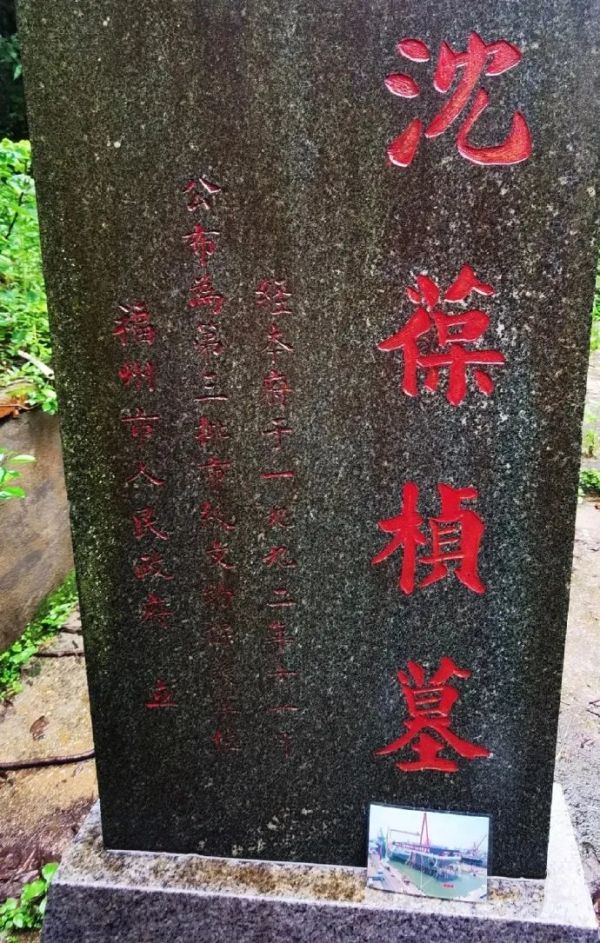 沈葆楨墓
经本府于一九九二年十一月
公布為第三批市级文物保单位
福州市人民政府 立